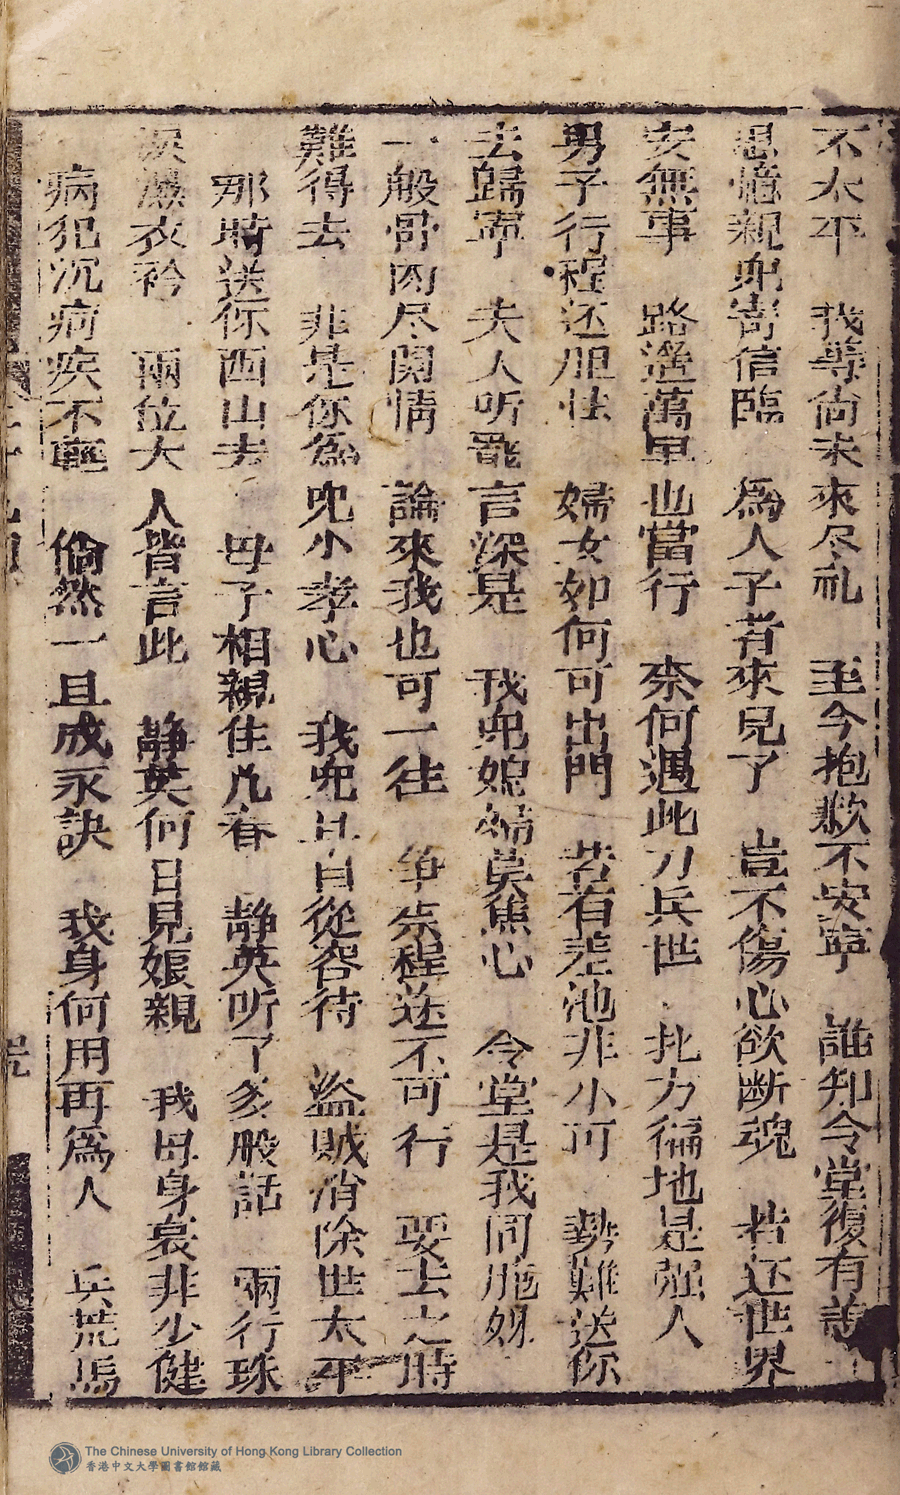 不太平　我尊尙未來尽礼　至今抱歉不安寧　誰知令堂復有恙
思憶親兒寄信臨　爲人子者來見了　豈不傷心欲断魂　若还世界
安無事　路遙萬里也當行　柰何遇此刀兵世　扎方徧地是强人
男子行程还胆怯　婦女如何可出門　若有差池非小可　勢難送你
去歸寧　夫人听罷言深是　我兒媳婦莫焦心　令堂是我同胞妹
一般骨肉尽関情　論來我也可一往　爭柰程途不可行　要去之時
難得去　非是你爲兒小孝心　我兒且自從容待　盜賊消除世太平
那時送你西山去　母子相親住几春　静英听了多般話　兩行珠
淚濕衣衿　兩位大人皆言此　静英何日見娘親　我母身衰非少健
病犯沉疴疾不輕　倘然一旦成永訣　我身何用再爲人　兵荒馬
The Chinese University of Hong Kong Library Collection
香港中文大學圖書館館藏